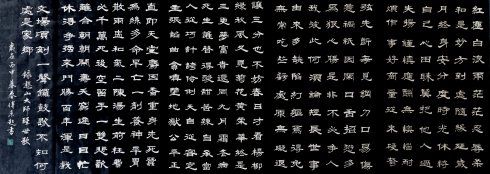 紅塵白浪兩茫茫忍辱柔
和是妙方到處隨緣延歲
月終身安分度時光休將
自己心田昧莫把他人過
失揚謹慎應酬無懊惱耐
煩作事好商量從來硬弩
弦先斷每見鋼刀口易傷
惹禍只因閒口舌招愆多
為狠心腸是非不必爭人
我彼此何須論短長世事
由來多缺陷幻軀焉得免
無常吃些虧處原無礙退
讓三分也不妨春日才看楊柳
綠秋風又見菊花黃榮華終是
三更夢富貴還同九月霜老病
死生誰替得酸甜苦辣自承當
人從巧計誇伶俐天自從容定
主張諂曲貪嗔墮地獄公平正
直即天堂麝因香重身先死蠶
為絲多命早亡一劑養神平胃
散兩盅和氣二陳湯生前枉費
心千萬死後空留手一雙悲歡
離合朝朝鬧壽夭窮通日日忙
休得爭強來鬥勝百年渾是戲
文場頃刻一聲鑼鼓歇不知何
處是家鄉 錄憨山大師醒世歌
歲在丙申暮春傅書